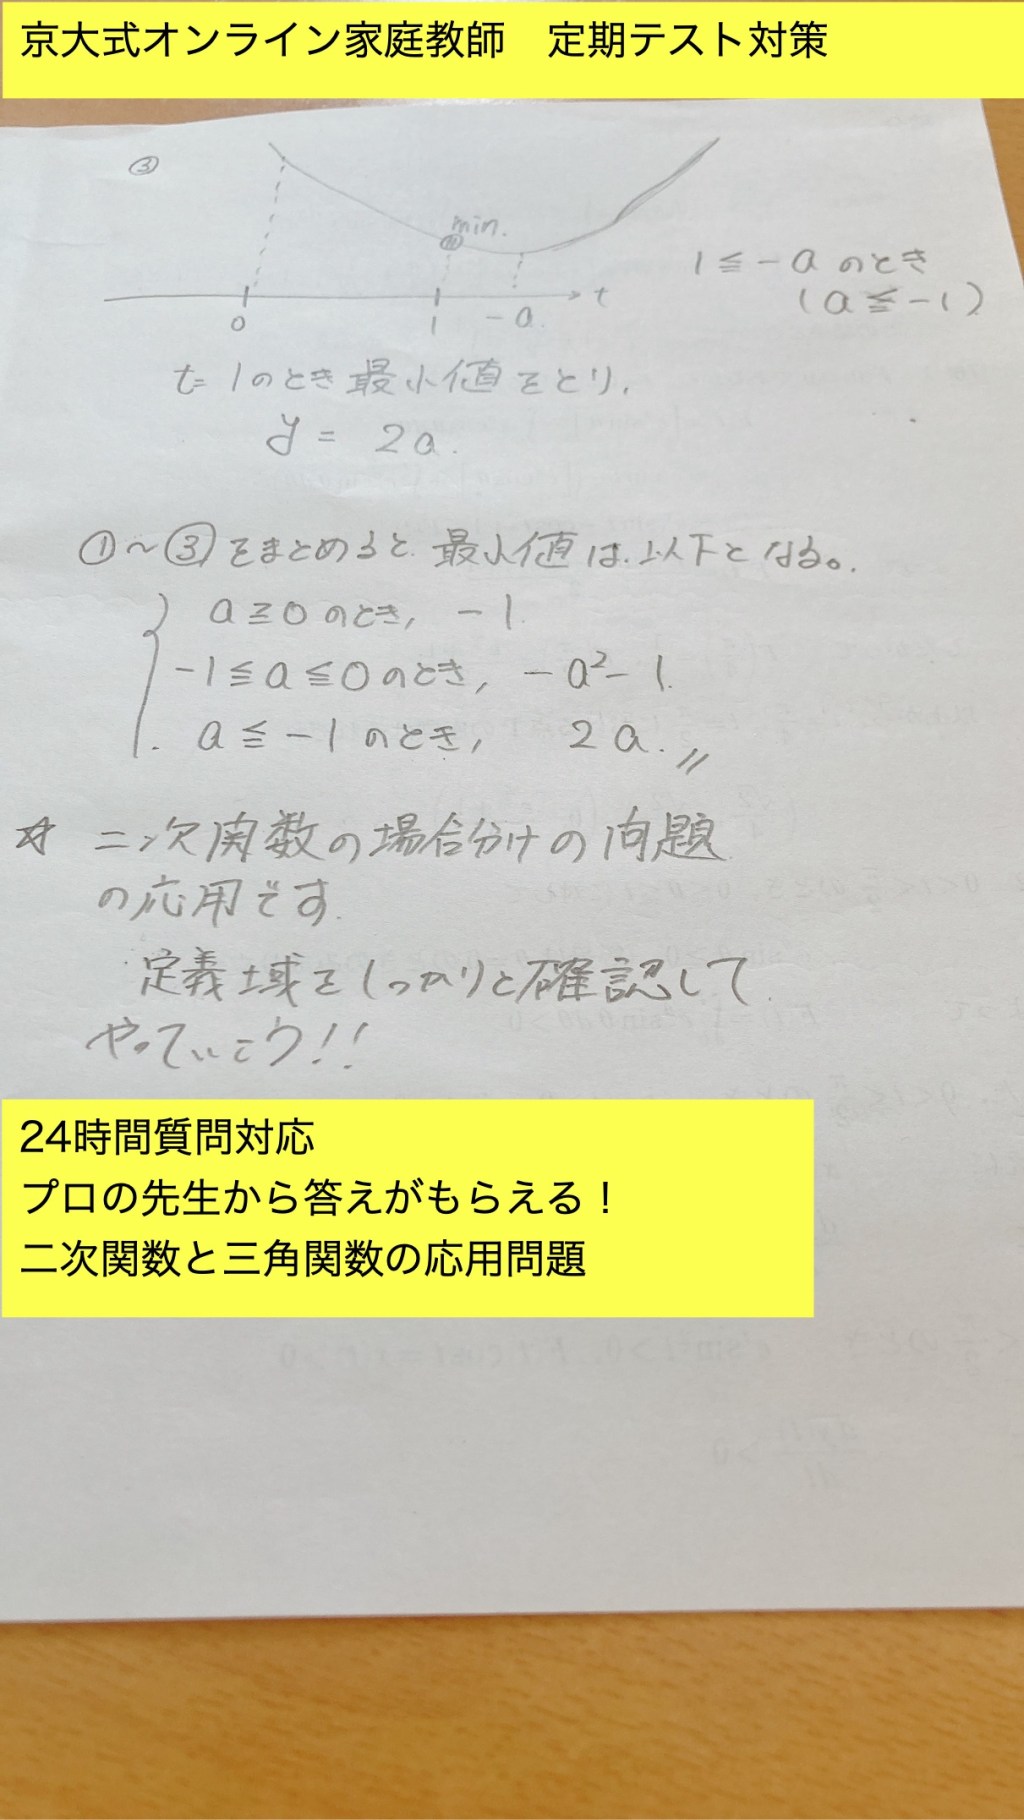 京大式オンライン家庭教師　定期テスト対策
③
min.
0 1 -a t
1≦-aのとき
(a≦-1)
t=1のとき最小値をとり,
y = 2a.
①～③をまとめると 最小値は以下となる。
a≧0のとき, -1
-1≦a≦0のとき, -a²-1.
a≦-1のとき, 2a.
☆ 二次関数の場合分けの問題
の応用です.
定義域をしっかりと確認して
やっていこう!!
24時間質問対応
プロの先生から答えがもらえる！
二次関数と三角関数の応用問題